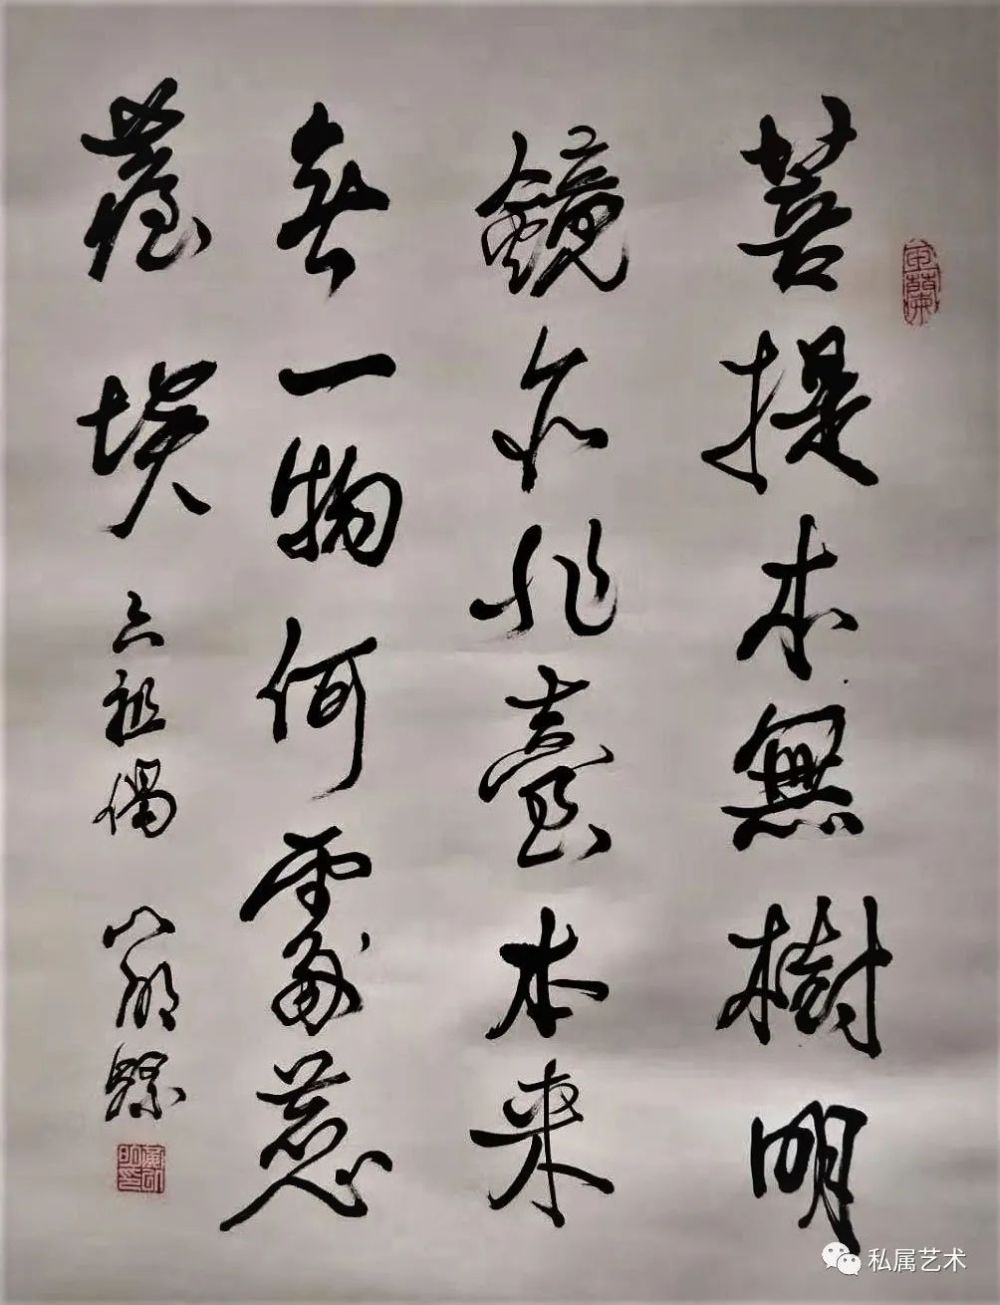 菩提本無樹明
鏡亦非臺本来
無一物何處惹
塵埃 六祖偈
私属艺术